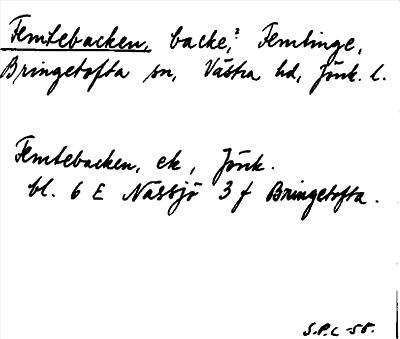 Femtebacken, backe,? Femtinge,
Bringetofta sn, Västra hd, Jönk. l.
Femtebacken, ek, Jönk.
bl. 6 E Nässjö 3 f Bringetofta.
S.P.L -58.